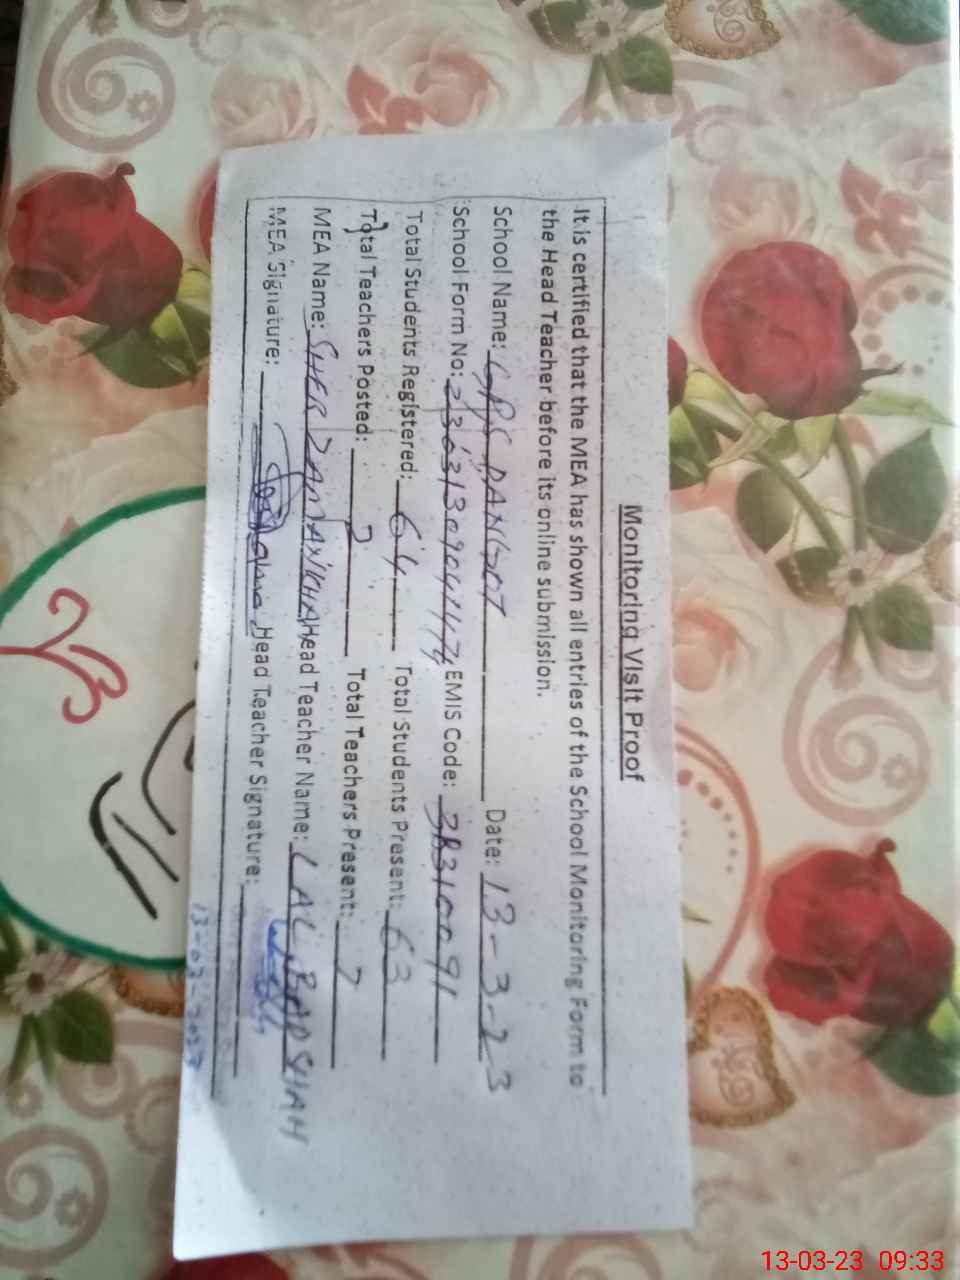 Monitoring Visit Proof
It is certified that the MEA has shown all entries of the School Monitoring Form to
the Head Teacher before its online submission.
School Name: GPS DANGOT Date: 13-3-23
School Form No: EMIS Code:
Total Students Registered: 64 Total Students Present: 63
Total Teachers Posted: 2 Total Teachers Present: 2
MEA Name: SHER ZAMAN KHAN Head Teacher Name: LAL BADSHAH
MEA Signature: Head Teacher Signature:
13-03-2023
13-03-23 09:33